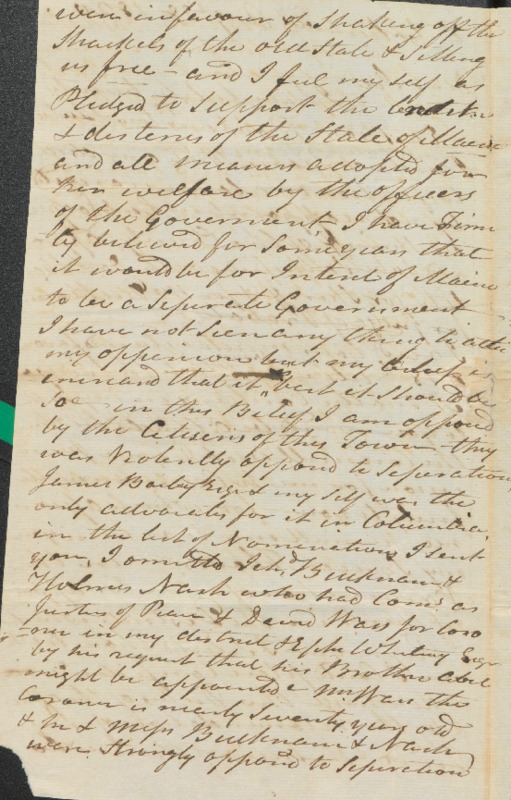 were in favour of Shaking off the
Shackels of the old State & Setting
us free - and I feel my self as
Pledged to Support the
& disteres of the State of Maine
and all measurs adopted for
her welfare by the officers
of the Goverment, I have Firm
ly believed for Some years that
it would be for Intrest of Maine
to be a Seperate Goverment
I have not Seen any thing to alter
my oppenion but my belief is
increasd that it best it Should be
So - in this Belief I am opposd
by the Citisens of this Town they
was Violently opposd to Seperation,
James Bailey Esqr & my Self was the
only advocats for it in Columbia
in the list of Nominations I sent
you, I omitted Jehd Bucknam &
Holmes Nash who had Coms as
Justes of Peace & David Wass for Coro
ner in my district & Ephr Whitney Esqr
by his request that his Brother Abel
might be appointed Mr Wass the
Coroner is nearly Seventy years old
& he & Messs Bucknam & Nash
were Strongly opposd to Seperation